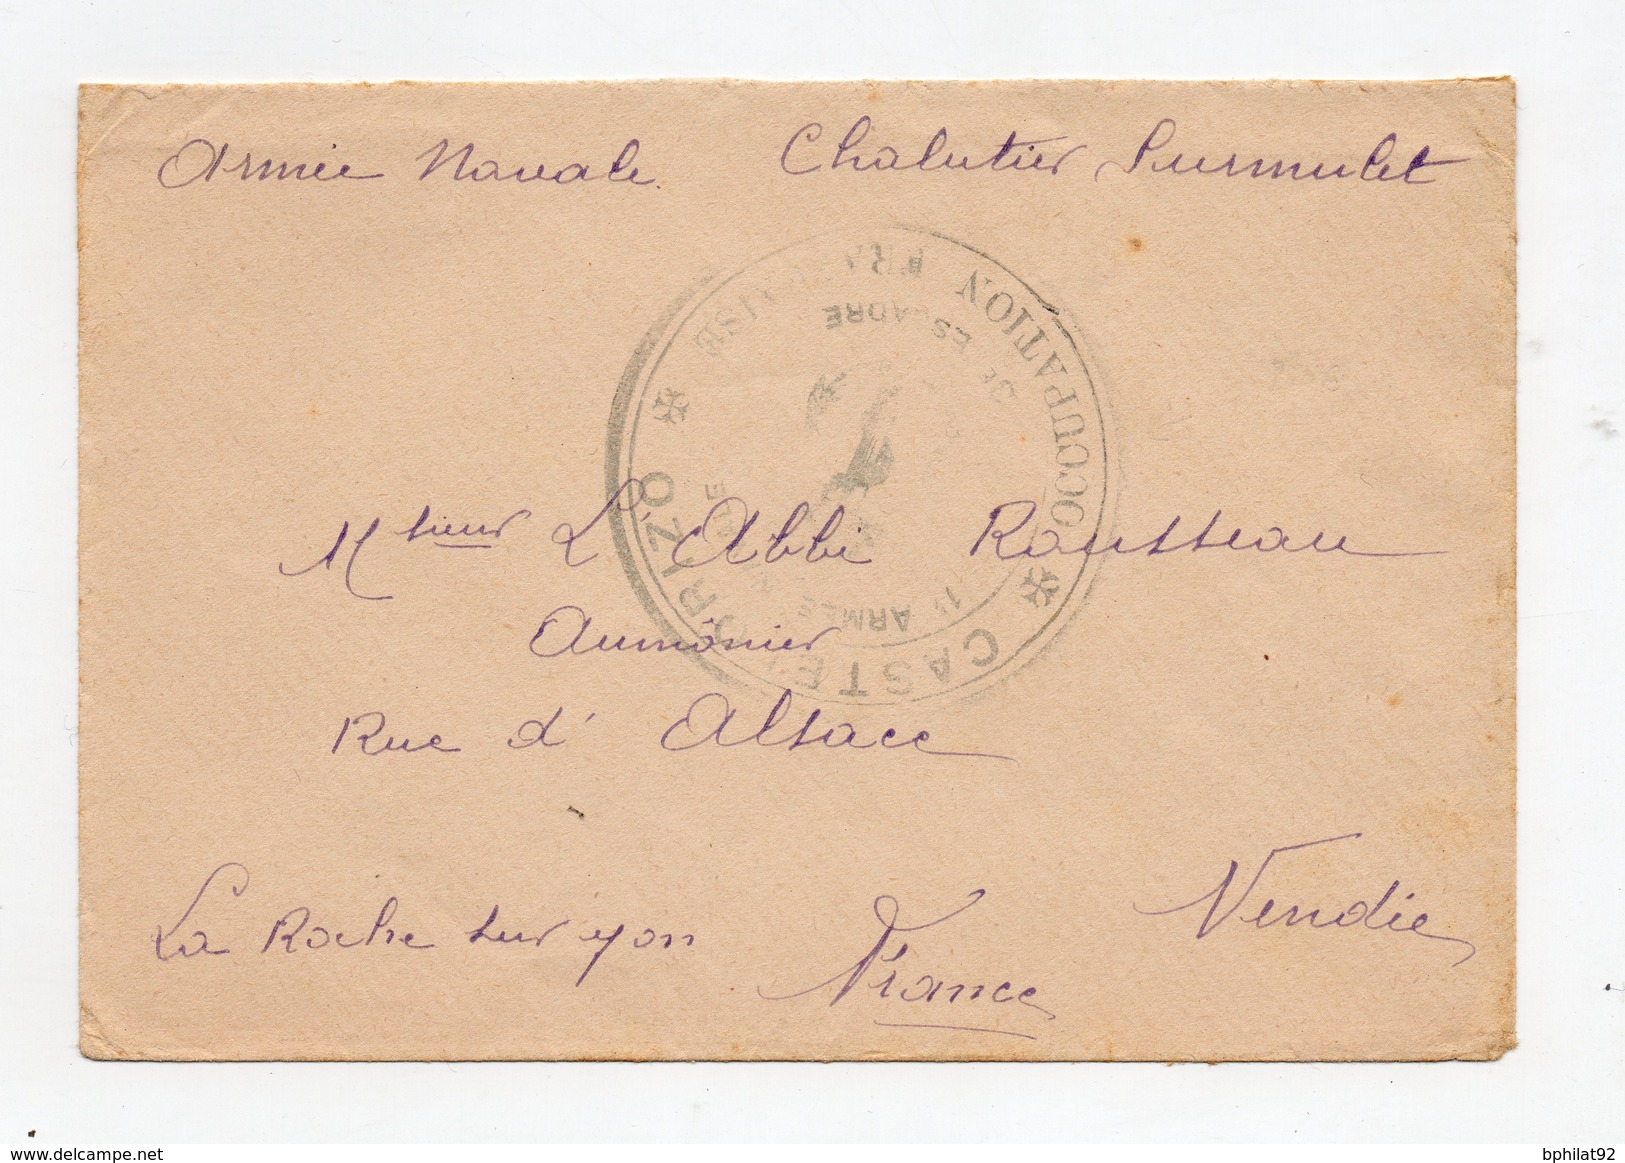 Armée Navale. Chalutier Surmulet
OCCUPATION FRANÇAISE
✠ CASTELORIZO ✠
3e ESCADRE
1re ARMÉE
Msieur L'Abbé Rousseau
Aumônier
Rue d'Alsace
La Roche sur yon Vendée
France
www.delcampe.net bphilat92